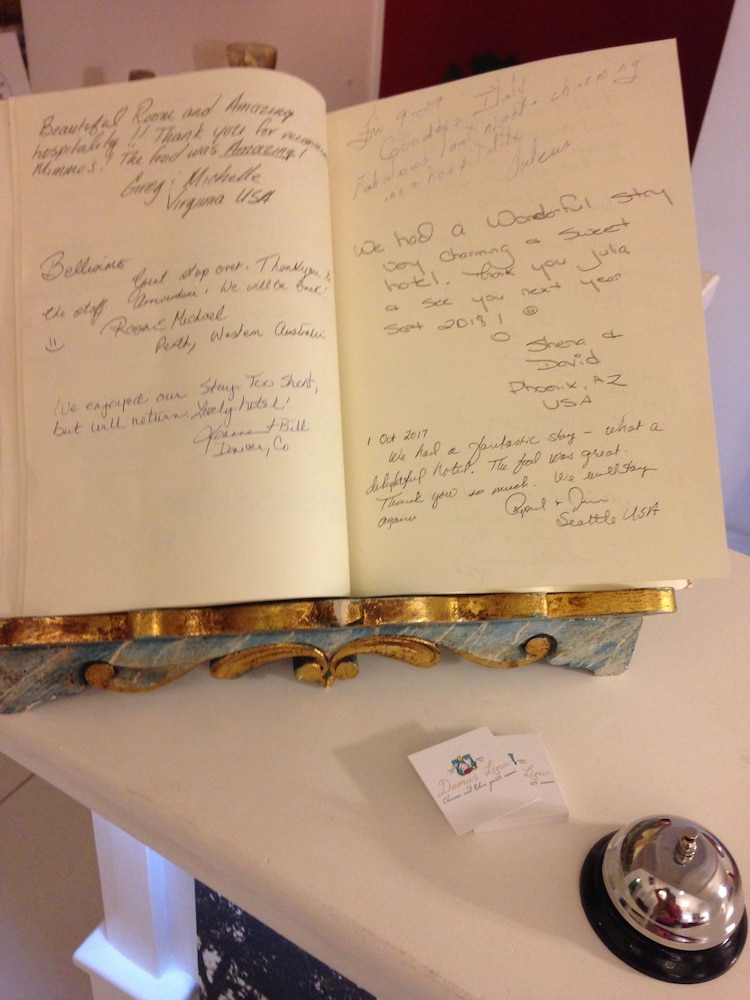 Beautiful Room and Amazing
hospitality!! Thank you for
Mimmos! The food was Amazing!
Greg & Michelle
Virginia USA
Bellisimo
Great stop over. Thankyou to
the staff We will be back!
Michael
Perth, Western Australia
We enjoyed our stay. Too short,
but will return. Lovely hotel!
Bill
Denver, Co
Fri 9-29
Goodbye Italy
Fabulous last night - charming
inn & hospitality
We had a wonderful stay
very charming & sweet
hotel. Thank you Julia
& see you next year
Sept 2018!
Shena &
David
Phoenix, AZ
USA
1 Oct 2017
We had a fantastic stay - what a
delightful hotel. The food was great.
Thank you so much. We will stay
again
& Jim
Seattle USA
Domus Lina
Lina